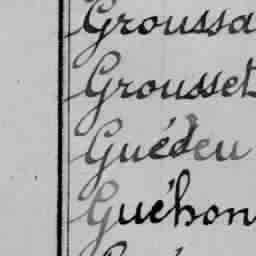 Groussa
Grousset
Guédeu
Guéhon